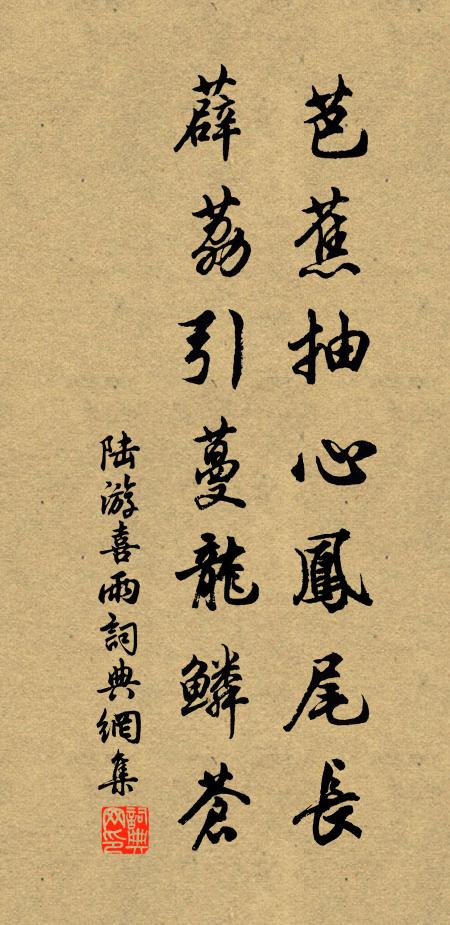 芭蕉抽心鳳尾長
薜荔引蔓龍鱗蒼
陸游喜雨詞典網集
詞典網印